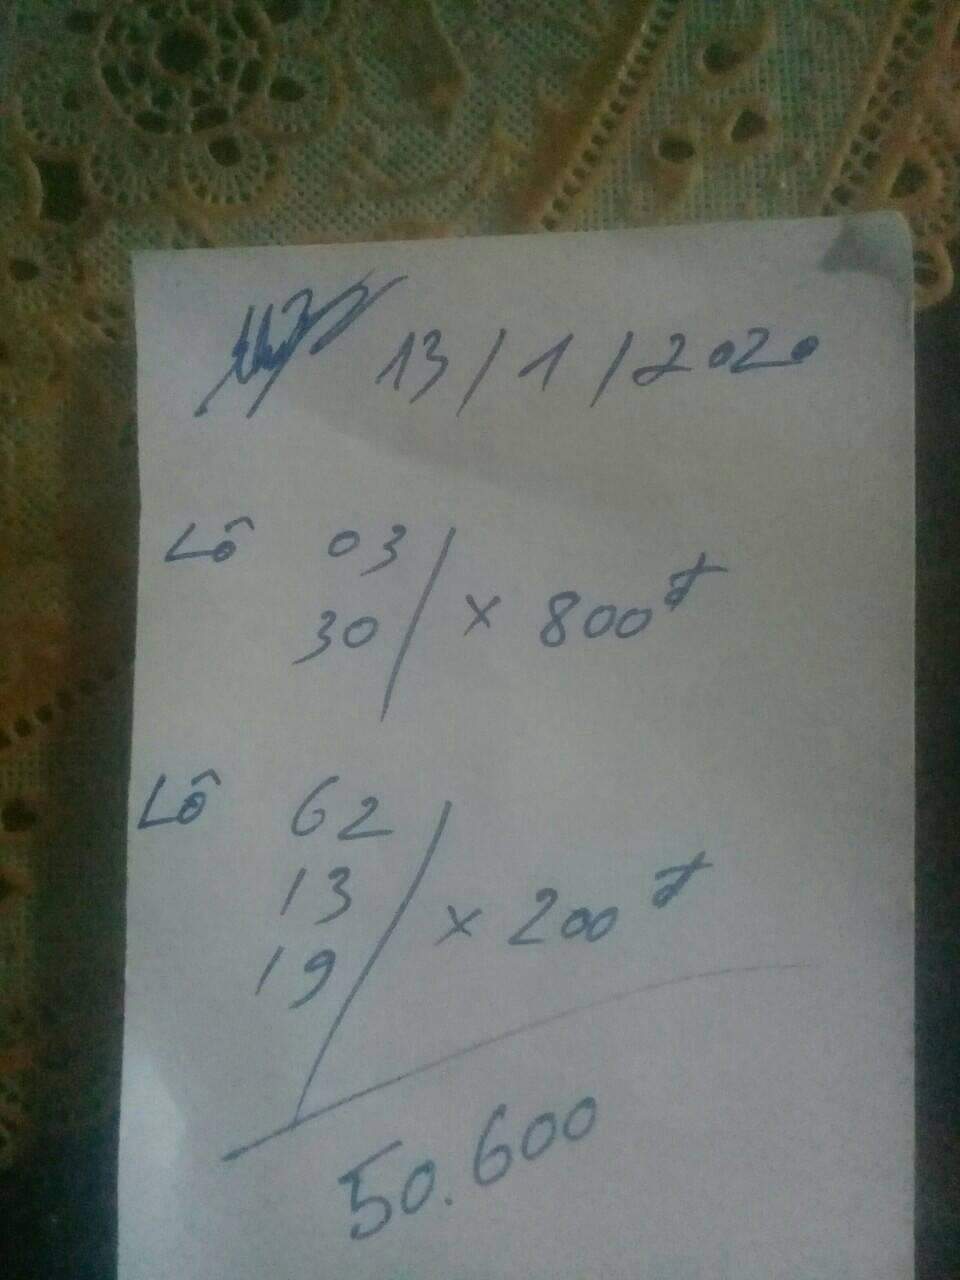 13/1/2020
Lô 03
30 / × 800đ
Lô 62
13
19 / × 200đ
50.600